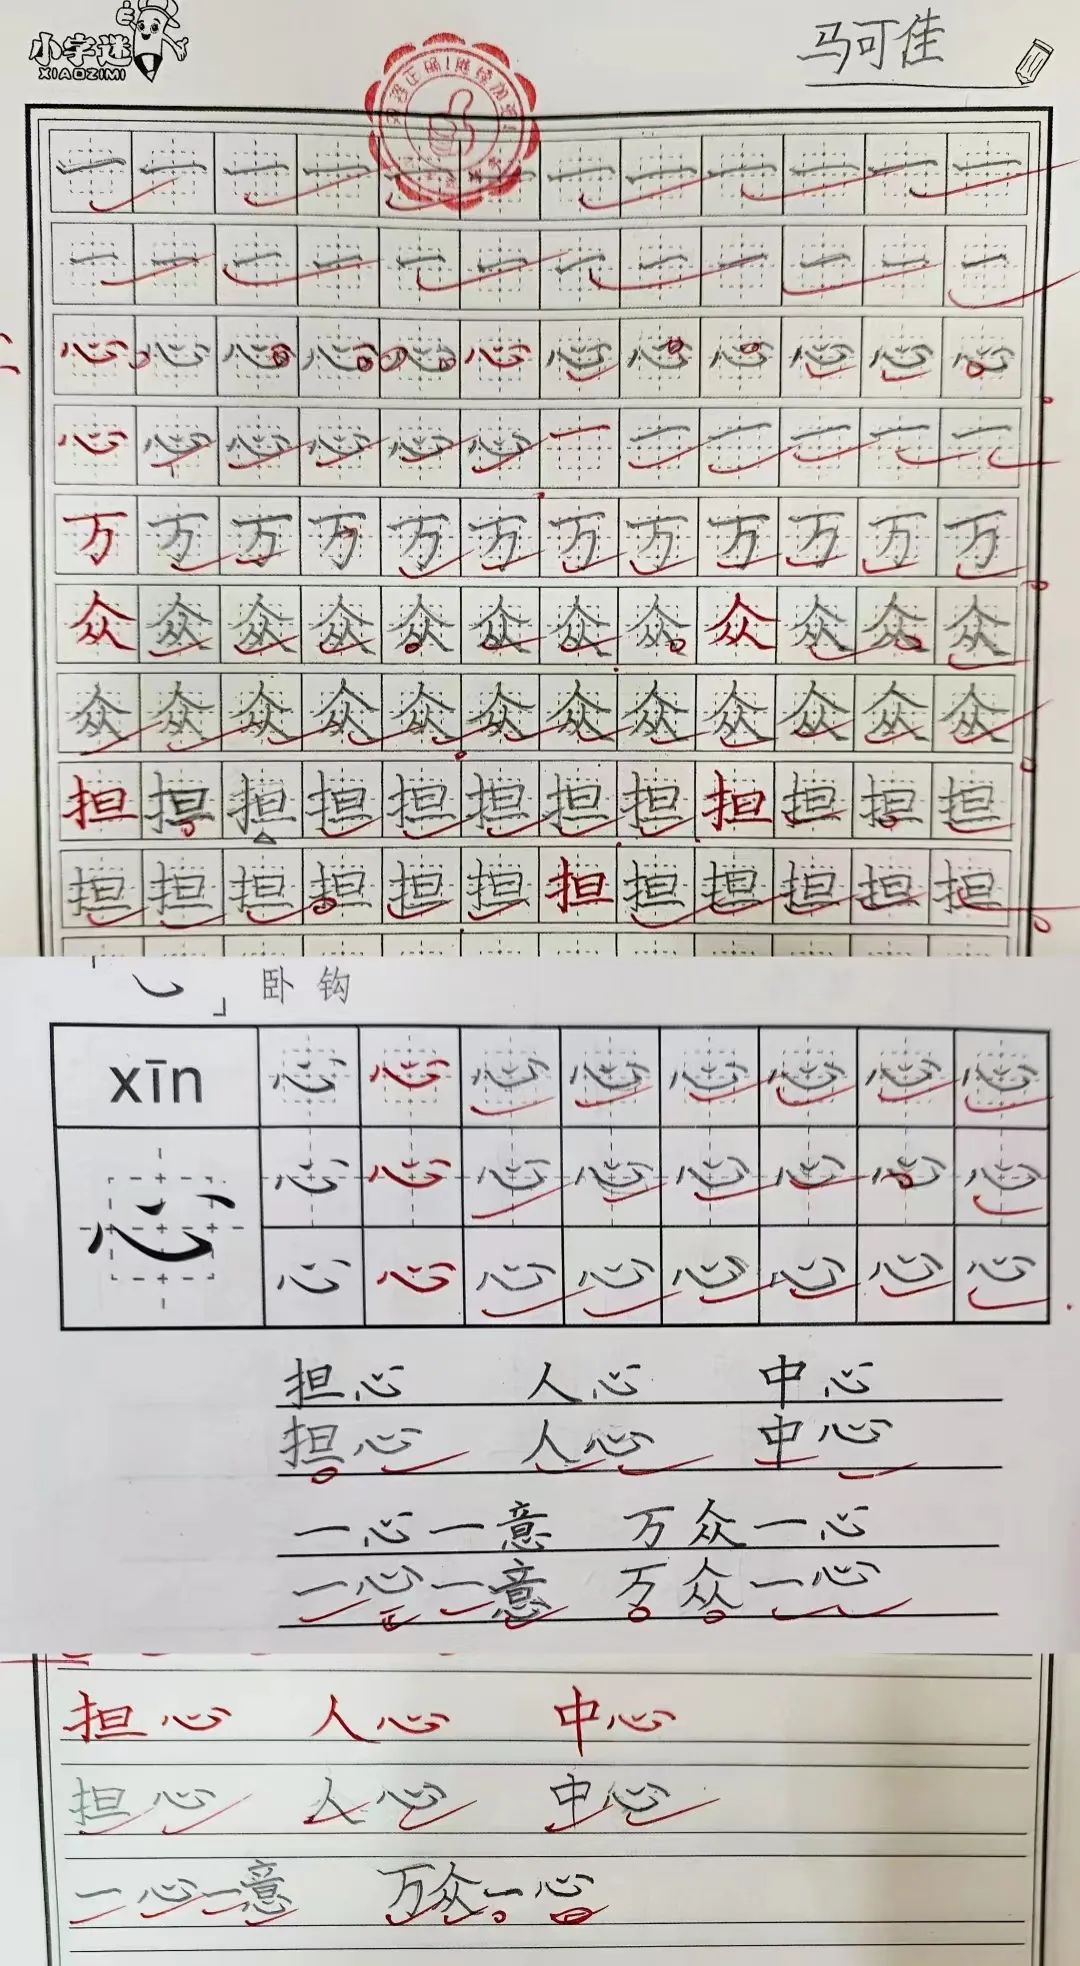 小字迷
XIAOZIMI
马可佳
一一一一一一一一一一一一
一一一一一一一一一一一一
心心心心心心心心心心心心
心心心心心心一一一一一一
万万万万万万万万万万万万
众众众众众众众众众众众众
众众众众众众众众众众众众
担担担担担担担担担担担担
担担担担担担担担担担担担
卧钩
xīn 心心心心心心心心
心 心心心心心心心心
心心心心心心心心
担心 人心 中心
担心 人心 中心
一心一意 万众一心
一心一意 万众一心
担心 人心 中心
担心 人心 中心
一心一意 万众一心